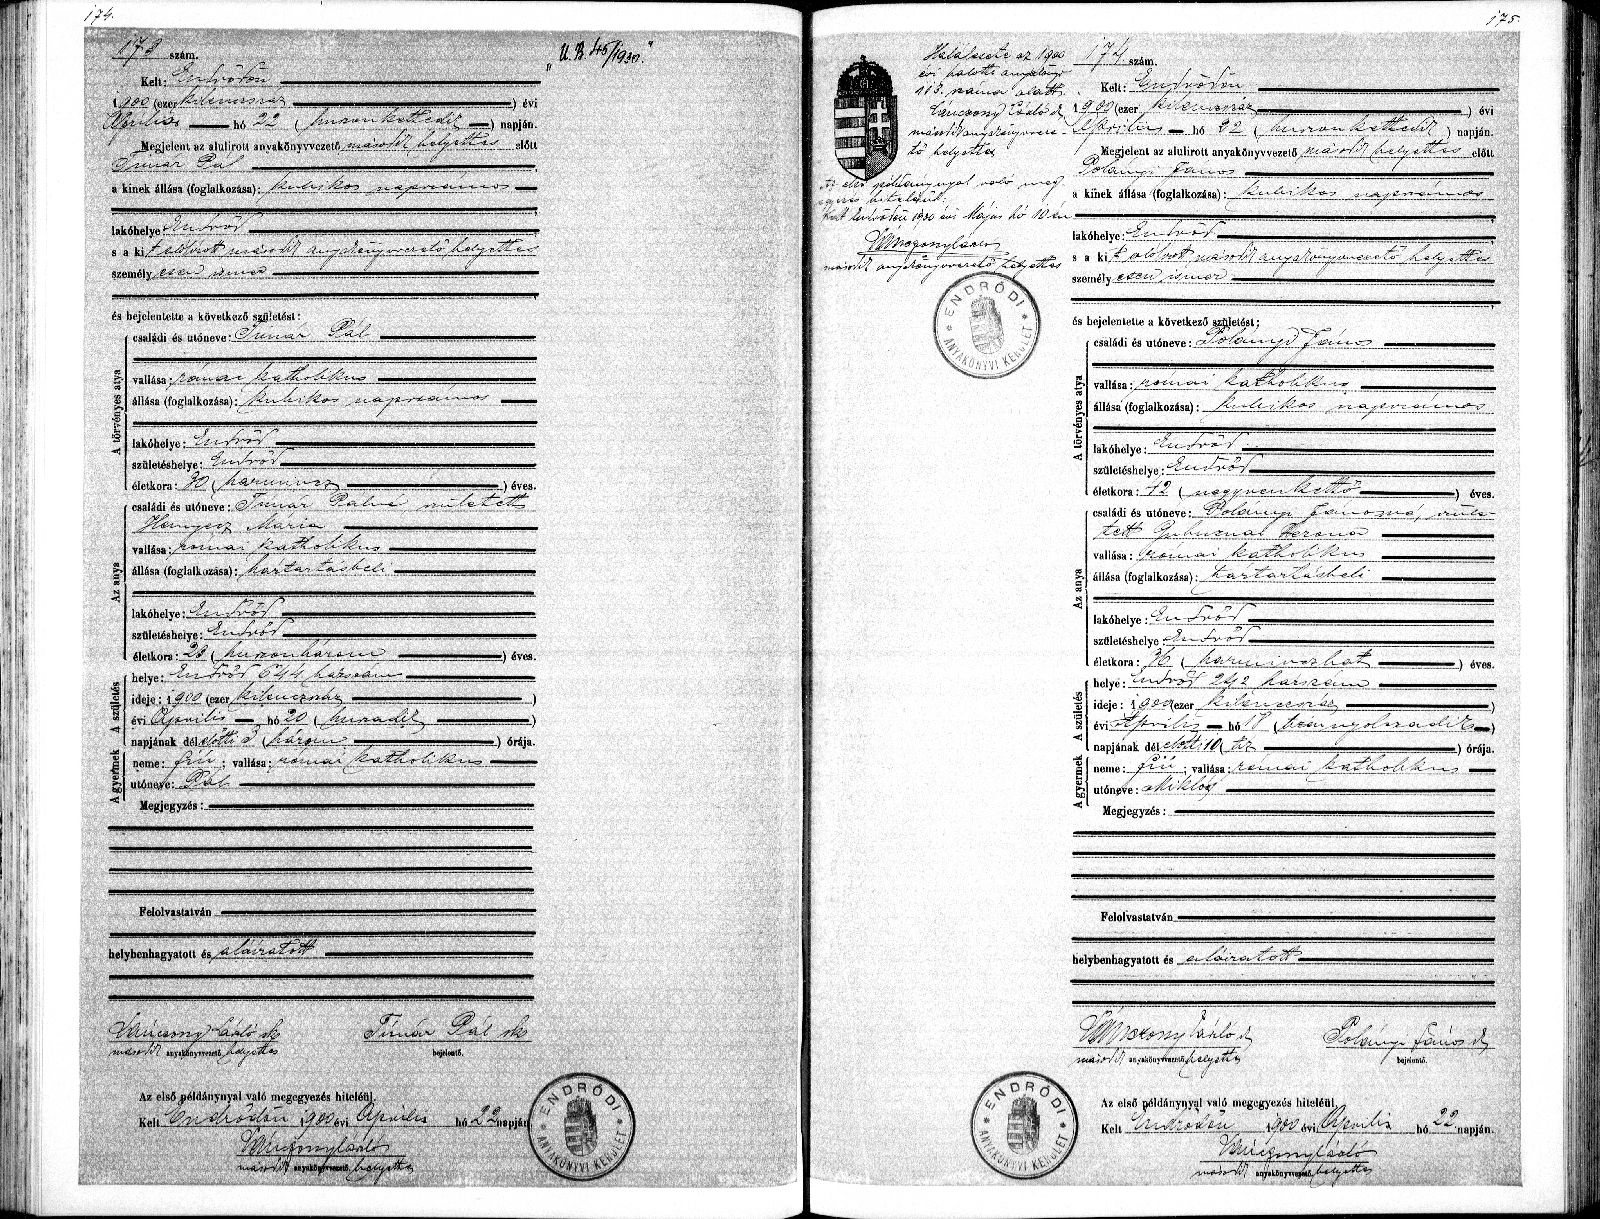 174.
173 szám.
"U. B. 45/1930."
Kelt: Endrődön
1900 (ezer kilenczszáz) évi
Április hó 22 (huszonkettedik) napján.
Megjelent az alulirott anyakönyvvezető második helyettes előtt
Timár Pál
a kinek állása (foglalkozása): kubikos napszámos
lakóhelye Endrőd
s a kit alólirott második anyakönyvvezető helyettes
személyesen ismer
és bejelentette a következő születést:
A törvényes atya
családi és utóneve: Timár Pál
vallása: római katholikus
állása (foglalkozása): kubikos napszámos
lakóhelye: Endrőd
születéshelye: Endrőd
életkora: 30 (harmincz) éves.
Az anya
családi és utóneve: Timár Pálné született
Hanyecz Mária
vallása: római katholikus
állása (foglalkozása): háztartásbeli
lakóhelye: Endrőd
születéshelye: Endrőd
életkora: 23 (huszonhárom) éves.
A születés
helye: Endrőd 644 házszám
ideje: 1900 (ezer kilenczszáz)
évi Április hó 20 (huszadik)
napjának délelőtti 3 (három) órája.
A gyermek
neme: fiú; vallása: római katholikus
utóneve: Pál
Megjegyzés:
Felolvastatván
helybenhagyatott és aláiratott
László sk
Timár Pál sk
második anyakönyvvezető helyettes
bejelentő.
Az első példánynyal való megegyezés hiteléül.
Kelt Endrődön 1900 évi Április hó 22 napján
László
második anyakönyvvezető helyettes
ENDRŐDI
ANYAKÖNYVI KERÜLET
175.
Halálesete az 1900
évi halotti anyakönyv
113. száma alatt.
László sk
második anyakönyvveze-
tő helyettes
Az első példánynyal való meg
egyezés hiteléül.
Kelt Endrődön 1900 évi Május hó 10 én
László
második anyakönyvvezető helyettes
ENDRŐDI
ANYAKÖNYVI KERÜLET
174. szám.
Kelt: Endrődön
1900 (ezer kilenczszáz) évi
Április hó 22 (huszonkettedik) napján.
Megjelent az alulirott anyakönyvvezető második helyettes előtt
Polányi János
a kinek állása (foglalkozása): kubikos napszámos
lakóhelye: Endrőd
s a kit alólirott második anyakönyvvezető helyettes
személyesen ismer
és bejelentette a következő születést:
A törvényes atya
családi és utóneve: Polányi János
vallása: római katholikus
állása (foglalkozása): kubikos napszámos
lakóhelye: Endrőd
születéshelye: Endrőd
életkora: 42 (negyvenkettő) éves.
Az anya
családi és utóneve: Polányi Jánosné, szüle-
tett Gubucznai Verona
vallása: római katholikus
állása (foglalkozása): háztartásbeli
lakóhelye: Endrőd
születéshelye Endrőd
életkora: 36 (harminczhat) éves.
A születés
helye: Endrőd 242 házszám
ideje: 1900 (ezer kilenczszáz)
évi Április hó 18 (tizennyolczadik)
napjának délelőtti 10 (tíz) órája.
A gyermek
neme: fiú; vallása: római katholikus
utóneve: Miklós
Megjegyzés:
Felolvastatván
helybenhagyatott és aláiratott
László sk
Polányi János sk
második anyakönyvvezető helyettes
bejelentő.
Az első példánynyal való megegyezés hiteléül.
Kelt Endrődön 1900 évi Április hó 22 napján.
László
második anyakönyvvezető helyettes
ENDRŐDI
ANYAKÖNYVI KERÜLET